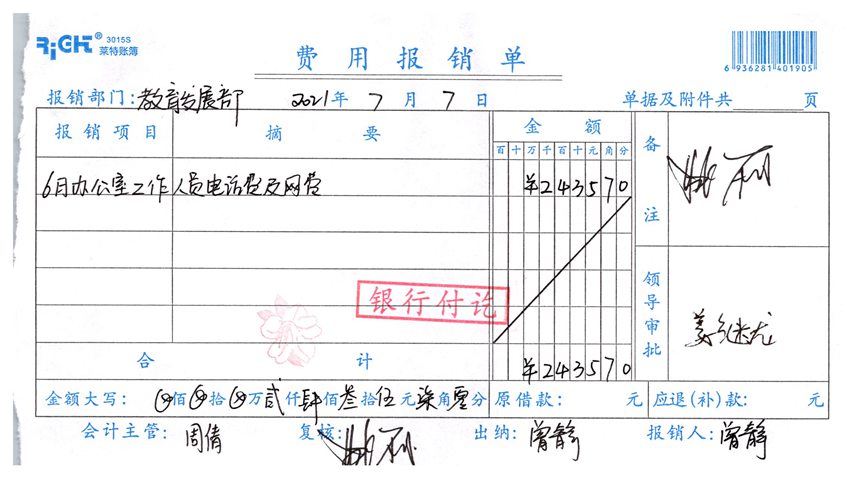 RiGHT® 3015S 莱特账簿
费用报销单
6 936281 401905
报销部门:教育发展部 2021年7月7日 单据及附件共 页
报销项目 摘要 金额 备注
百十万千百十元角分
6月办公室工作人员电话费及网费 ¥243570
领导审批
银行付讫
合计 ¥243570
金额大写: ⊗佰⊗拾⊗万贰仟肆佰叁拾伍元柒角零分 原借款: 元 应退(补)款: 元
会计主管: 周倩 复核: 出纳: 曾静 报销人: 曾静